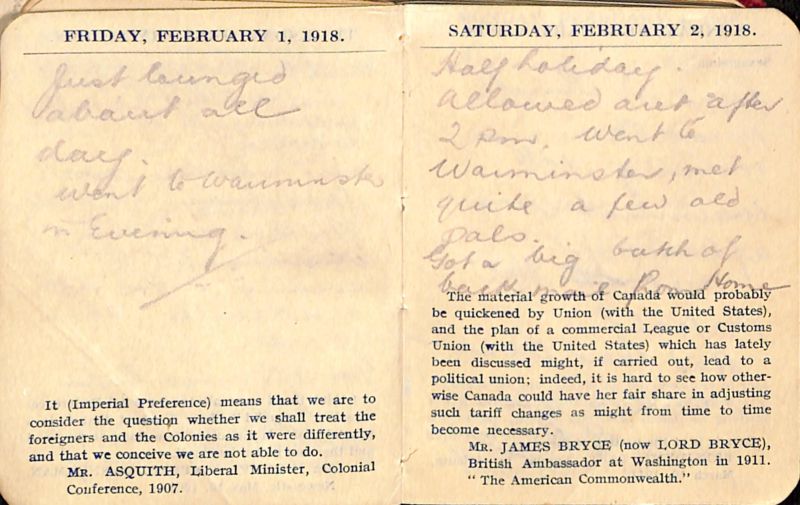 FRIDAY, FEBRUARY 1, 1918.
Just lounged
about all
day.
went to Warminster
in Evening.
It (Imperial Preference) means that we are to
consider the question whether we shall treat the
foreigners and the Colonies as it were differently,
and that we conceive we are not able to do.
Mr. ASQUITH, Liberal Minister, Colonial
Conference, 1907.
SATURDAY, FEBRUARY 2, 1918.
Half holiday.
Allowed out after
2 pm. Went to
Warminster, met
quite a few old
pals.
Got a big batch of
back mail from Home
The material growth of Canada would probably
be quickened by Union (with the United States),
and the plan of a commercial League or Customs
Union (with the United States) which has lately
been discussed might, if carried out, lead to a
political union; indeed, it is hard to see how other-
wise Canada could have her fair share in adjusting
such tariff changes as might from time to time
become necessary.
Mr. JAMES BRYCE (now LORD BRYCE),
British Ambassador at Washington in 1911.
"The American Commonwealth."